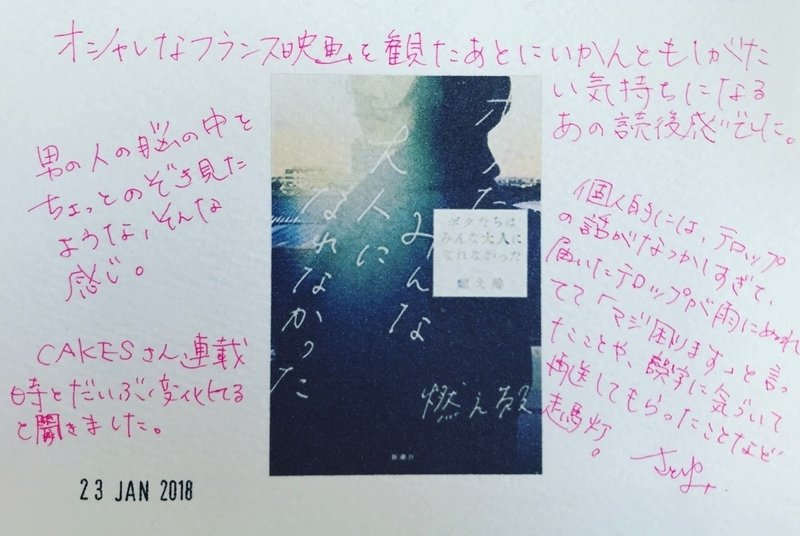 オシャレなフランス映画を観たあとにいかんともしがた
い気持ちになる
あの読後感でした。
男の人の脳の中を
ちょっとのぞき見た
ような、そんな
感じ。
CAKESさん連載
時とだいぶ変化してる
と聞きました。
23 JAN 2018
ボクたちは
みんな
大人に
なれなかった
ボクたちは
みんな大人に
なれなかった
燃え殻
燃え殻
新潮社
個人的には、テロップ
の話がなつかしすぎて、
届いたテロップが雨にぬれ
てて「マジ困ります」と言っ
たことや、誤字に気づいて
再送してもらったことなど
走馬灯。